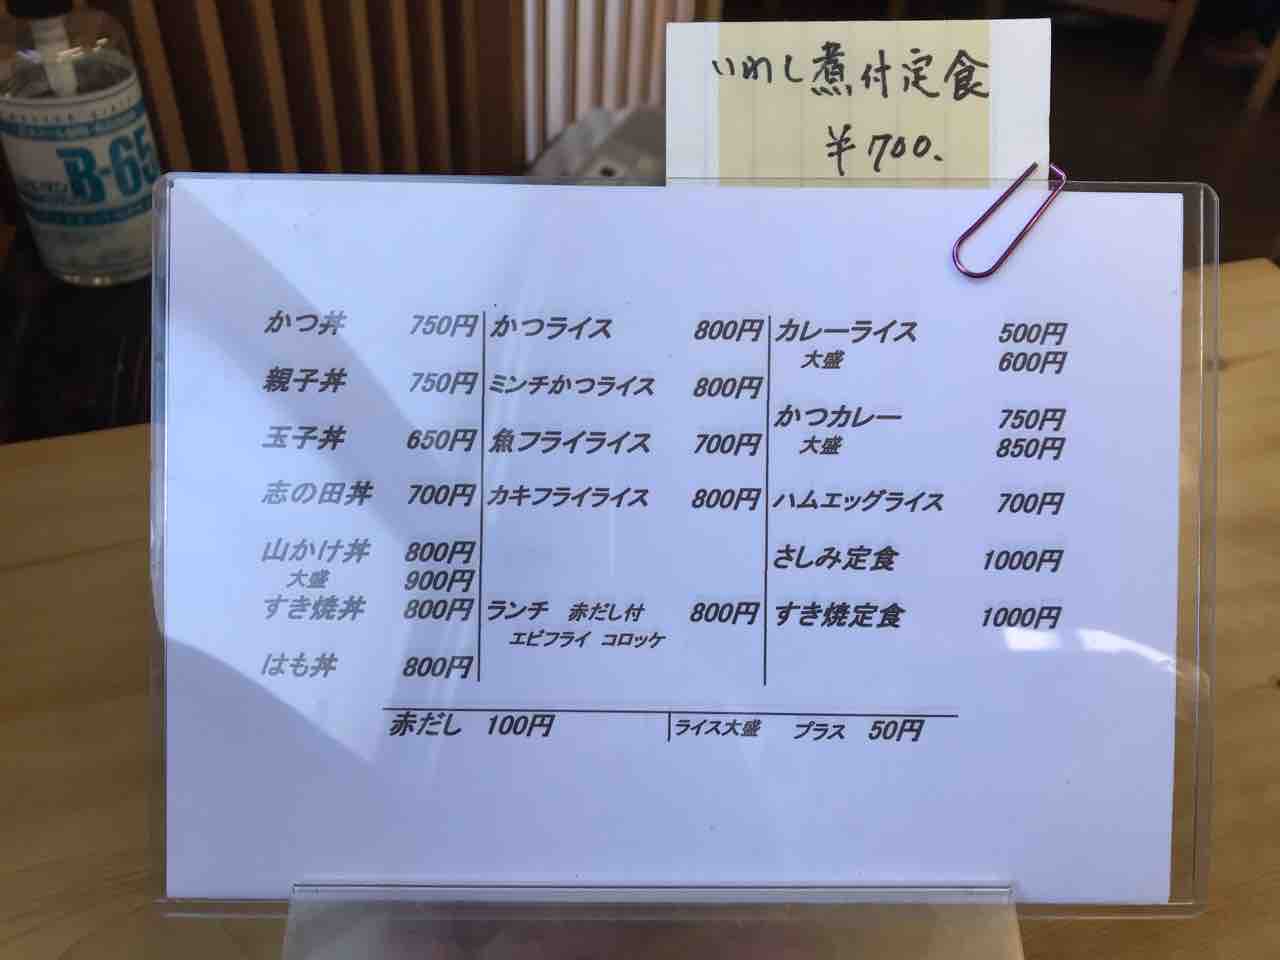 いわし煮付定食
¥700.
B-65
かつ丼 750円
親子丼 750円
玉子丼 650円
志の田丼 700円
山かけ丼 800円
大盛 900円
すき焼丼 800円
はも丼 800円
かつライス 800円
ミンチかつライス 800円
魚フライライス 700円
カキフライライス 800円
ランチ 赤だし付 800円
エビフライ コロッケ
カレーライス 500円
大盛 600円
かつカレー 750円
大盛 850円
ハムエッグライス 700円
さしみ定食 1000円
すき焼定食 1000円
赤だし 100円
ライス大盛 プラス 50円